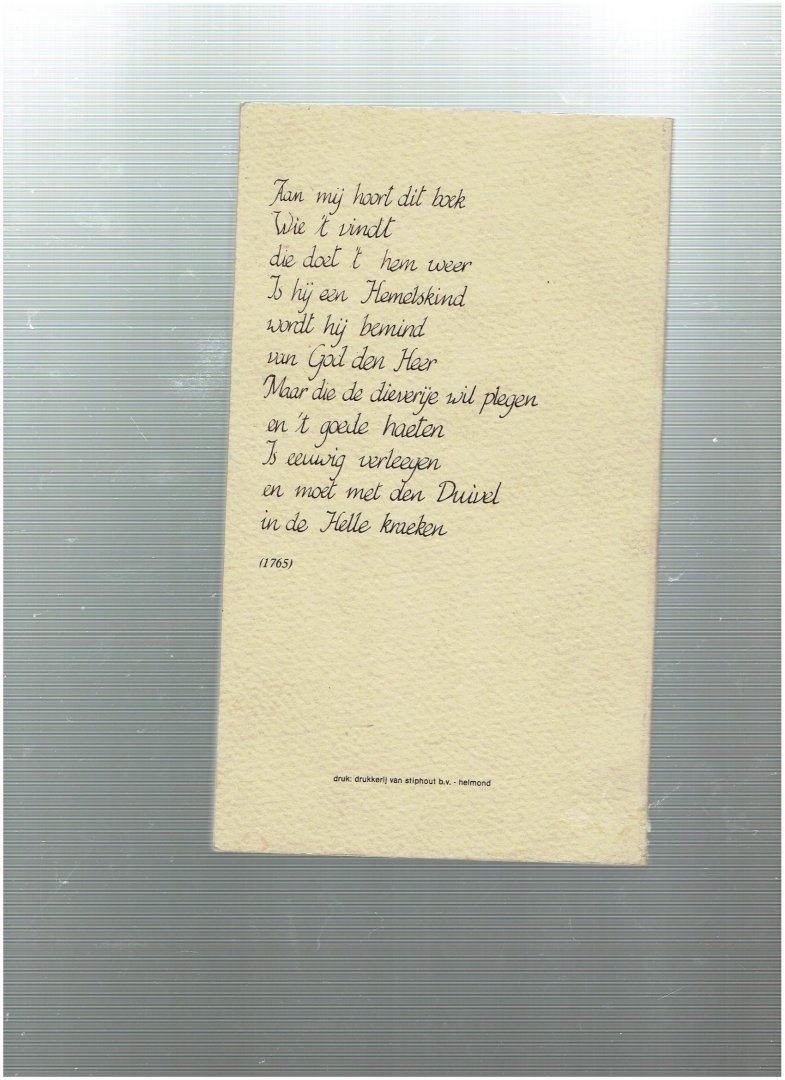 Aan mij hoort dit boek
Wie 't vindt
die doet 't hem weer
Is hij een Hemelskind
wordt hij bemind
van God den Heer
Maar die de dieverije wil plegen
en 't goede haeten
Is eeuwig verleegen
en moet met den Duivel
in de Helle kraeken
(1765)
druk: drukkerij van stiphout b.v. - helmond